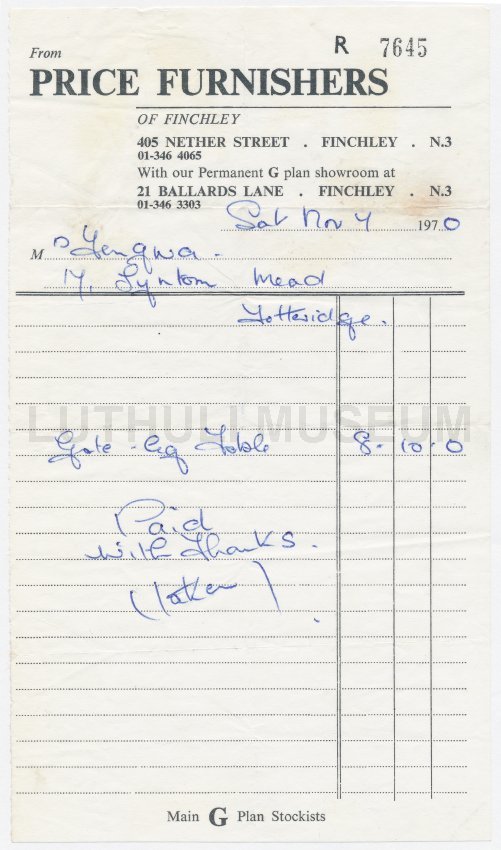 R 7645
From
PRICE FURNISHERS
OF FINCHLEY
405 NETHER STREET . FINCHLEY . N.3
01-346 4065
With our Permanent G plan showroom at
21 BALLARDS LANE . FINCHLEY . N.3
01-346 3303
Sat Nov 7 1970
M Yengwa.
17, Lynton Mead
Totteridge.
LUTHULI MUSEUM
Gate-leg Table 8-10-0
Paid
with thanks.
(taken)
Main G Plan Stockists